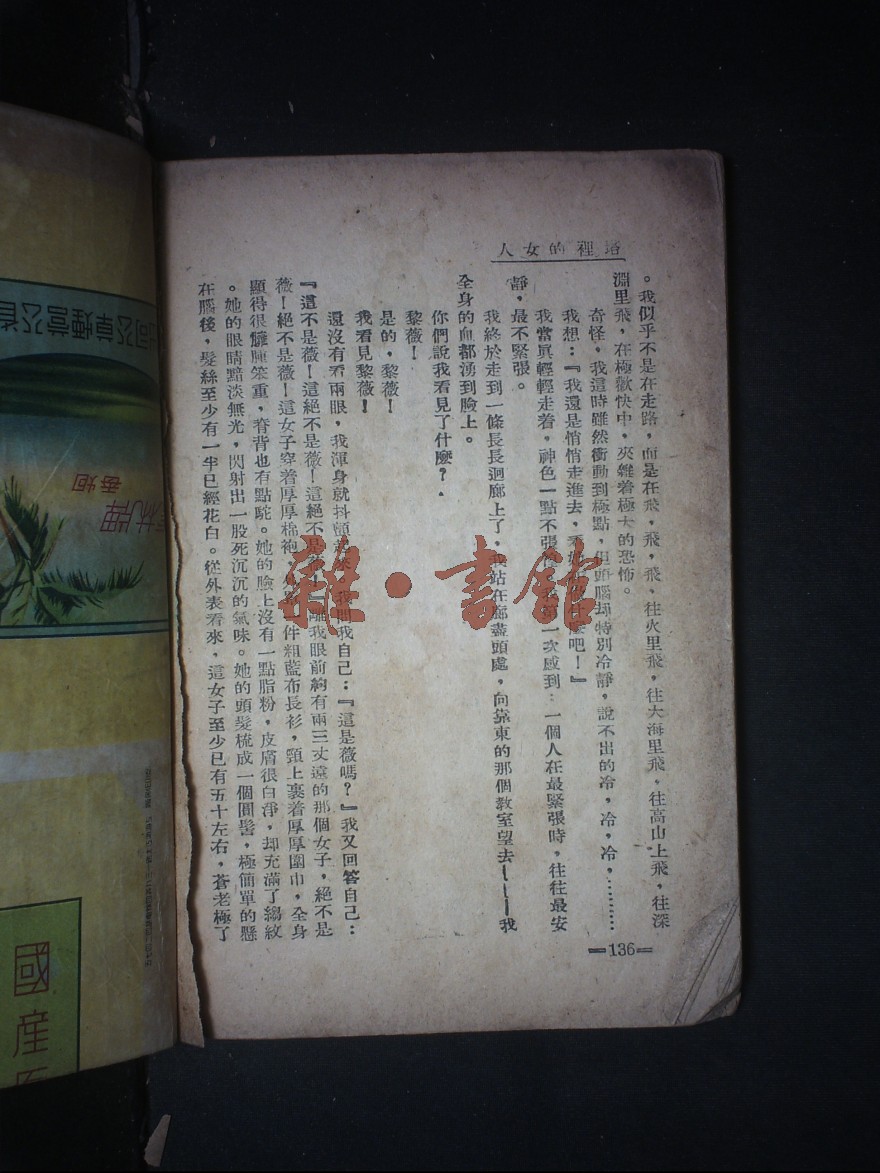 塔裡的女人
。我似乎不是在走路，而是在飛，飛，飛、往火里飛，往大海里飛，往高山上飛，往深
淵里飛，在極歡快中，夾雜着極大的恐怖。
奇怪，我這時雖然衝動到極點，但頭腦却特別冷靜，說不出的冷，冷，冷，…………
我想：『我還是悄悄走進去，看她 什麼吧！』
我當眞輕輕走着，神色一點不張 第一次感到：一個人在最緊張時，往往最安
靜，最不緊張。
我終於走到一條長長迴廊上了，我站在廊盡頭處，向靠東的那個教室望去———我
全身的血都湧到臉上。
你們說我看見了什麼？．
黎薇！
是的，黎薇！
我看見黎薇！
還沒有看兩眼，我渾身就抖顫起來，我問我自己：『這是薇嗎？』我又回答自己：
『這不是薇！這絕不是薇！這絕不是薇！離我眼前約有兩三丈遠的那個女子，絕不是
薇！絕不是薇！這女子穿着厚厚棉袍， 一件粗藍布長衫，頸上裹着厚厚圍巾，全身
顯得很臃腫笨重，脊背也有點駝。她的臉上沒有一點脂粉，皮膚很白淨，却充滿了縐紋
。她的眼睛黯淡無光，閃射出一股死沉沉的氣味。她的頭髮梳成一個圓髻，極簡單的懸
在腦後，髮絲至少有一半已經花白。從外表看來，這女子至少已有五十左右，蒼老極了
=136=
雜·書館
司公草煙營公
牌
香烟
國產